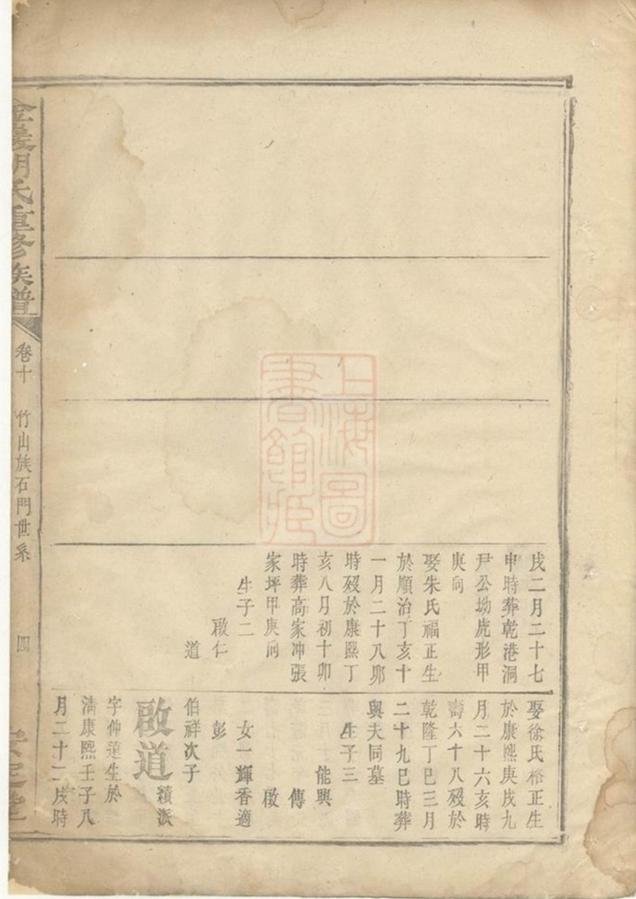 戌二月二十七
申時葬乾港洞
尹公坳虎形甲
庚向
娶朱氏福正生
於順治丁亥十
一月二十八卯
時殁於康熙丁
亥八月初十卯
時葬高家冲張
家坪甲庚向
生子二
啟仁
道
娶徐氏裕正生
於康熙庚戌九
月二十六亥時
壽六十八殁於
乾隆丁巳三月
二十九巳時葬
與夫同墓
生子三
能興
傳
徵
女一輝香適
彭
伯祥次子
啟道
續派
字仲蓮生於
清康熙壬子八
月二十二戌時
胡氏重修族譜
卷十
竹山族石門世系
四
上海圖
書館藏